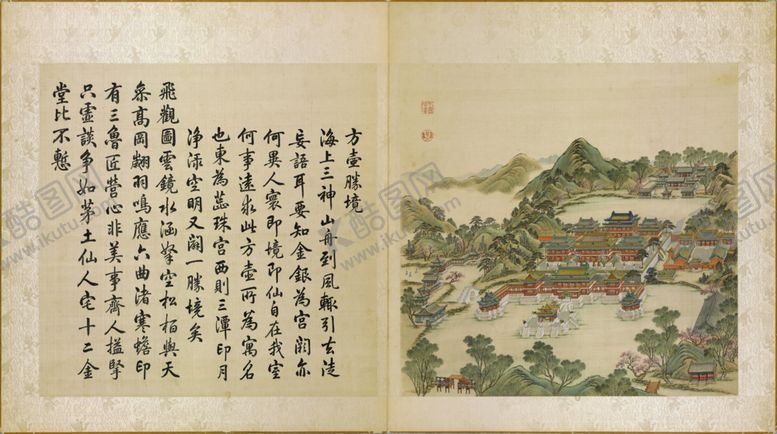 方壺勝境
海上三神山舟到風輒引去徒
妄語耳要知金銀為宮闕亦
何異人寰即境即仙自在我室
何事遠求此方壺所為寓名
也東為蕊珠宮西則三潭印月
淨淥空明又闢一勝境矣
飛觀圖雲鏡水涵拏空松栢與天
叅高岡翽羽鳴應六曲渚寒蟾印
有三魯匠營心非美事齊人搤掔
只虛談争如茅土仙人宅十二金
堂比不慙